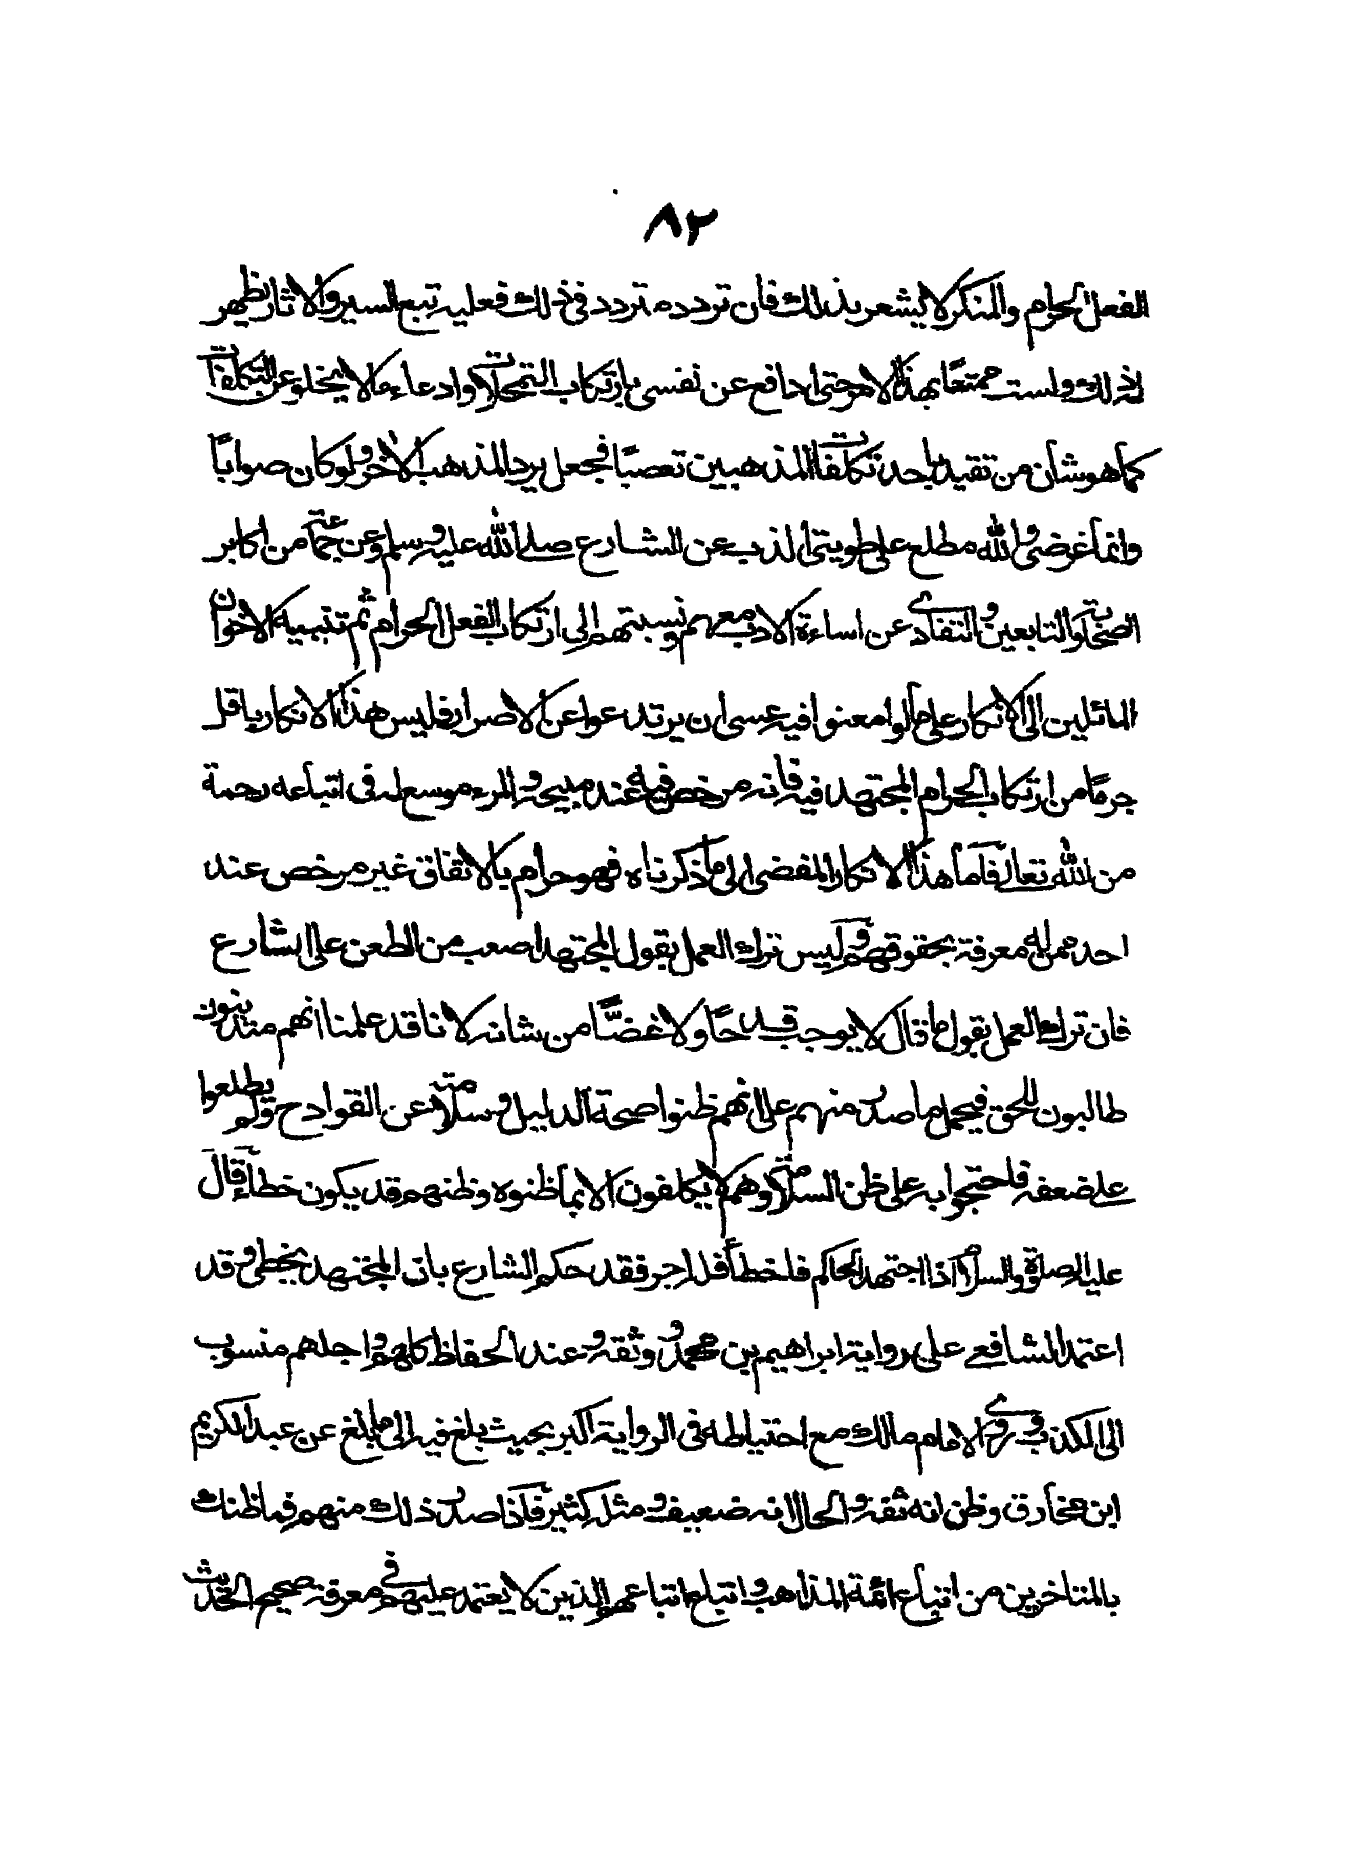 ٨٢
الفعل الحرام والمنكر لا يشعر بذلك فان تردده تردد في ذلك فعليه تبع السير والاثار يظهر
له ذلك ولست ممتعا بهذا الامر حتى ادافع عن نفسي بارتكاب التمحلات وادعاء ما لا يخلو عن التكلفات
كما هو شأن من تقيد باحد تكلفات المذهبين تعصبًا فجعل يرد المذهب الاخر ولو كان صوابًا
وانما غرضي والله مطلع على طويتي الذب عن الشارع صلى الله عليه وسلم وعن جمّ من اكابر
الصحابة والتابعين والتفادي عن اساءة الادب معهم ونسبتهم الى ارتكاب الفعل الحرام ثم تنبيه الاخوان
المائلين الى الانكار على ما لوا معنوا فيه عسى ان يرتدعوا عن الاصرار فليس هذا الانكار باقل
جرمًا من ارتكاب الحرام المجتهد فيه فانه مرخص فيه عند مبيحه والمرء موسع له في اتباعه رحمة
من الله تعالى فاما هذا الانكار المفضي الى ما ذكرناه فهو حرام بالاتفاق غير مرخص عند
احد ممن له معرفة بحقوقهم وليس ترك العمل بقول المجتهد اصعب من الطعن على الشارع
فان ترك العمل بقول ما قال لا يوجب قدحًا ولا غضًّا من شانه لانا قد علمنا انهم متدينون
طالبون للحق فيحمل ما صدر منهم على انهم ظنوا صحة الدليل وسلامته عن القوادح ولم يطلعوا
على ضعفه فاحتجوا به على ظن السلامة وهم لا يكلفون الا بما ظنوه وظنهم قد يكون خطأ قال
عليه الصلوة والسلام اذا اجتهد الحاكم فاخطأ فله اجر فقد حكم الشارع بان المجتهد يخطي وقد
اعتمد الشافعي على رواية ابراهيم بن محمد ووثقه وعند الحفاظ كلهم واجلهم منسوب
الى الكذب وروى الامام مالك مع احتياطه في الرواية اكبر بحيث بلغ فيه الى ما بلغ عن عبد الكريم
ابن مخارق وظن انه ثقة والحال انه ضعيف ومثله كثير فاذا صدر ذلك منهم فما ظنك
بالمتاخرين من اتباع ائمة المذاهب واتباع اتباعهم الذين لا يعتمد عليهم في معرفة صحيح الحديث